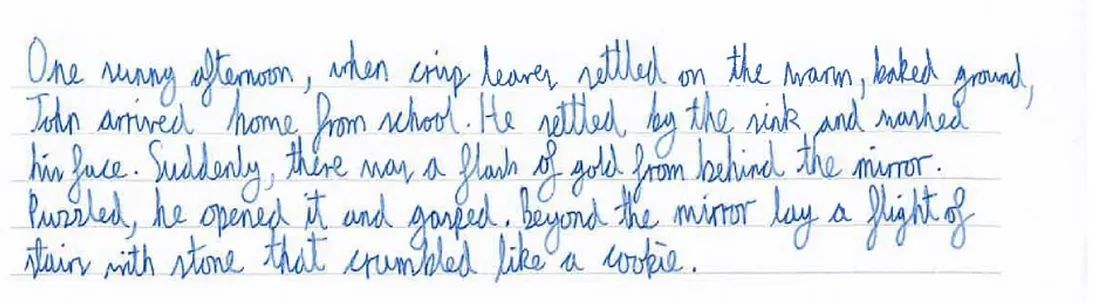 One sunny afternoon, when crisp leaves settled on the warm, baked ground,
John arrived home from school. He settled by the sink and washed
his face. Suddenly, there was a flash of gold from behind the mirror.
Puzzled, he opened it and gasped. Beyond the mirror lay a flight of
stairs with stone that crumbled like a cookie.